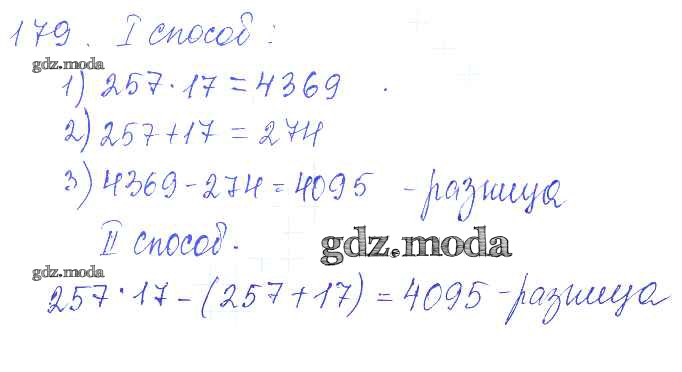 179. I способ:
gdz.moda
1) 257·17=4369
2) 257+17=274
3) 4369-274=4095 -разница
II способ.
gdz.moda
gdz.moda
257·17-(257+17)=4095-разница